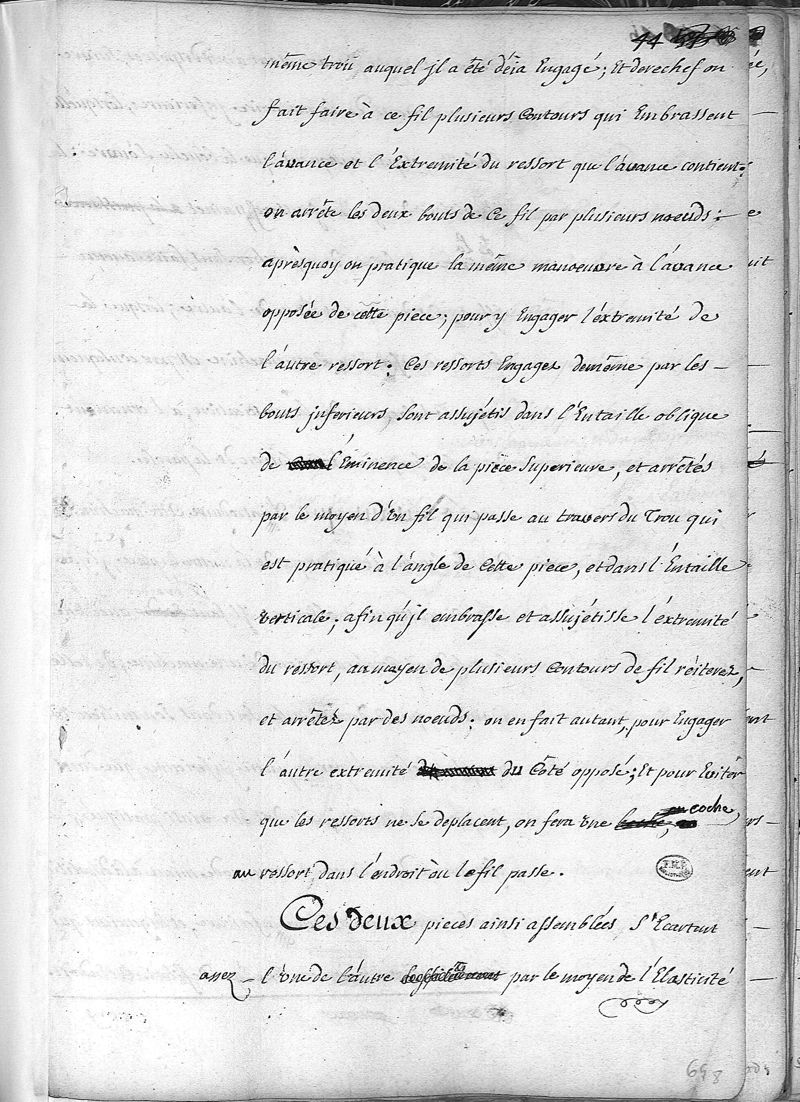 44
même trou auquel jl a été déja Engagé; Et derechef on
fait faire à ce fil plusieurs Contours qui Embrassent
l'avance et l'Extremité du ressort que l'avance contient:
on arrête les deux bouts de Ce fil par plusieurs noeuds:
aprèsquoy on pratique la même manoeuvre à l'avance
opposée de cette piece; pour y Engager l'éxtremité de
l'autre ressort: Ces ressorts Engagez demême par les
bouts jnferieurs, sont assujétis dans l'Entaille oblique
de l'Eminence de la piece Superieure, et arrêtés
par le moyen d'Un fil qui passe au travers du Trou qui
est pratiqué à l'angle de Cette piece, et dans l'Entaille
verticale; afin qu'jl embrasse et assujétisse l'éxtremité
du ressort, au moyen de plusieurs Contours de fil réiterez,
et arrêtez par des noeuds: on en fait autant, pour Engager
l'autre extremité du Côté opposé; Et pour Eviter
que les ressorts ne se deplacent, on fera Une coche,
au ressort dans l'endroit où le fil passe.
Ces deux pieces ainsi assemblées, S'Ecartent
assez l'Une de l'autre par le moyen de l'Elasticité
698